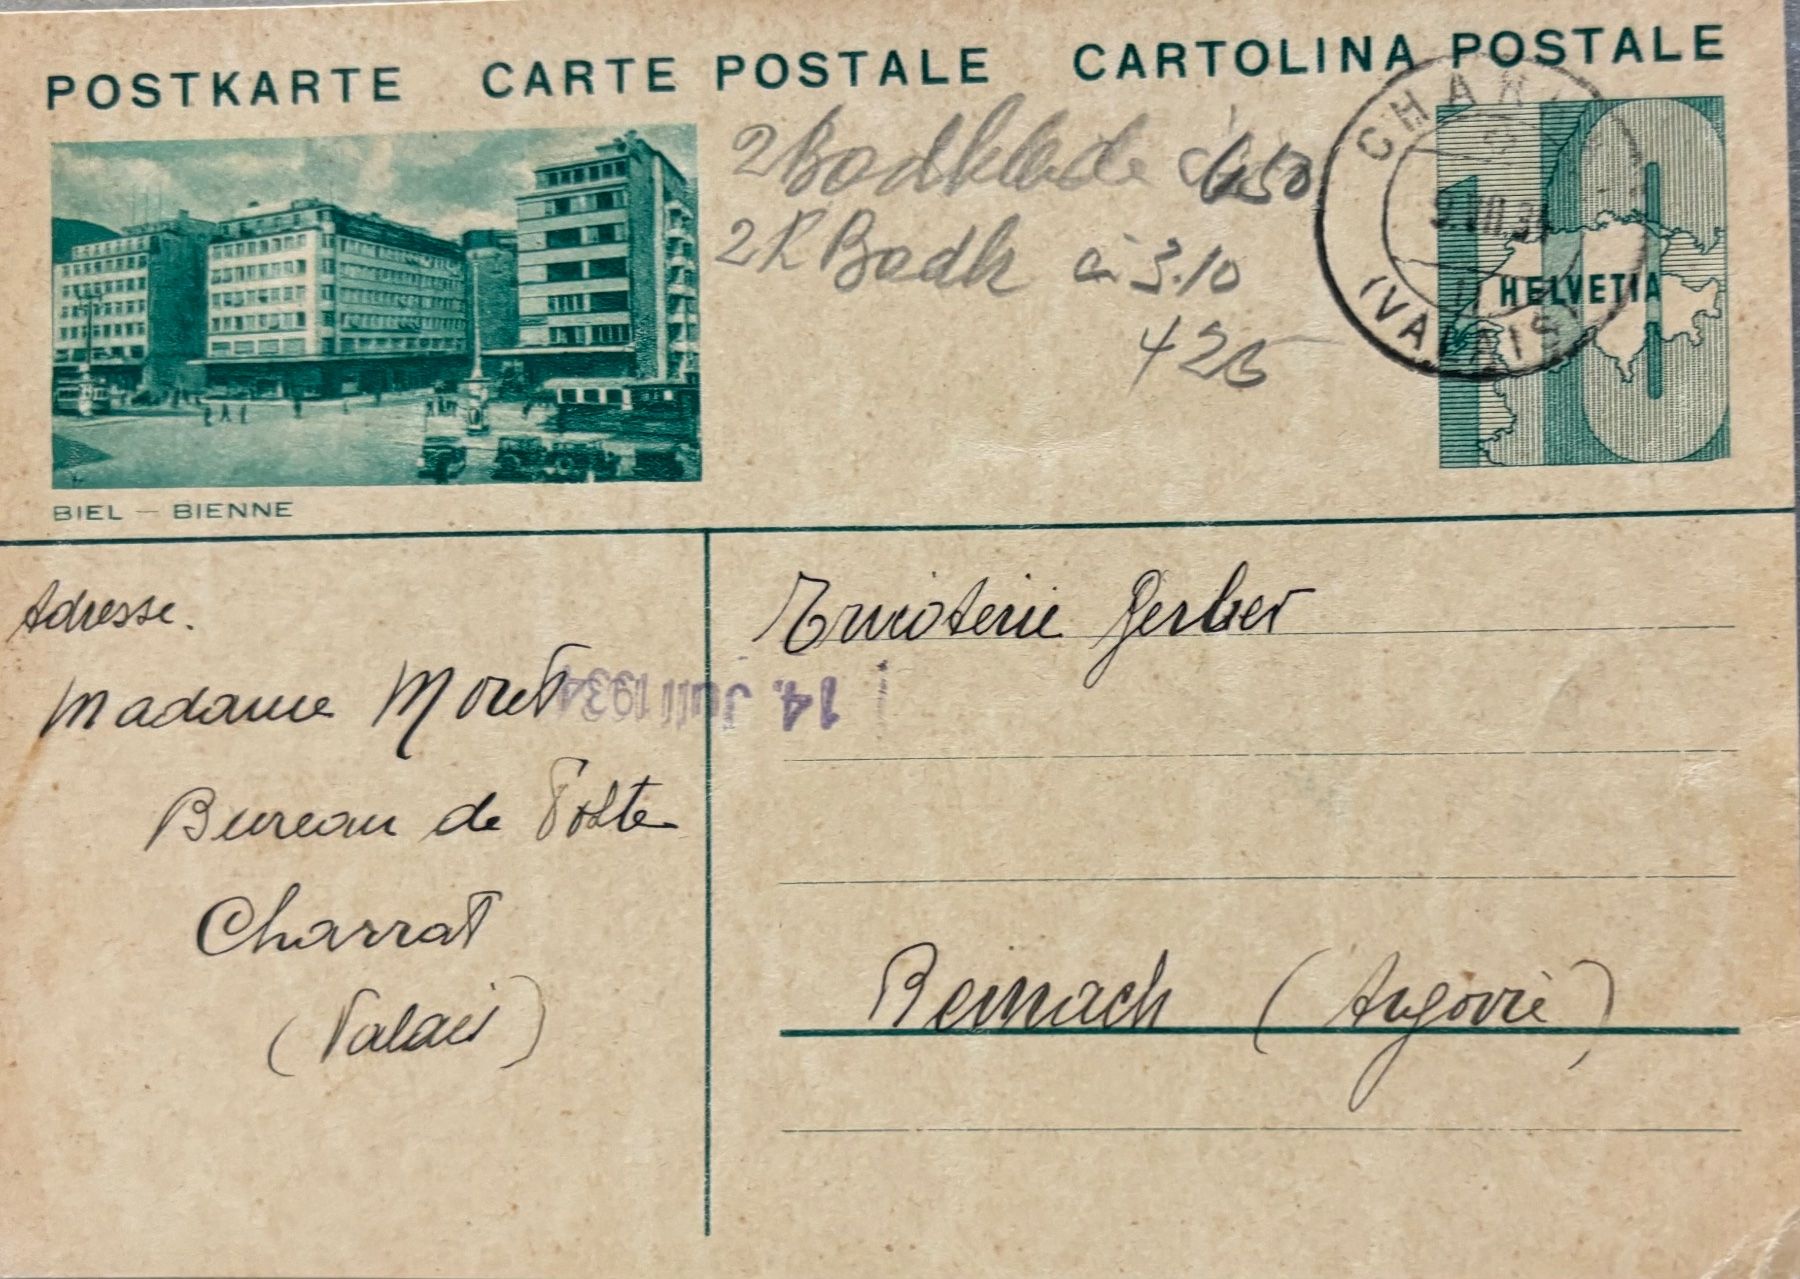 POSTKARTE CARTE POSTALE CARTOLINA POSTALE
2 Badkleide à 4.50
2 K Badk à 3.10
4 25
CHARRAT
9.VII.34
(VALAIS)
10
HELVETIA
BIEL – BIENNE
Adresse.
Madame Moret
Bureau de Poste
Charrat
(Valais)
14. Juli 1934
Tricoterie Gerber
Reinach (Argovie)